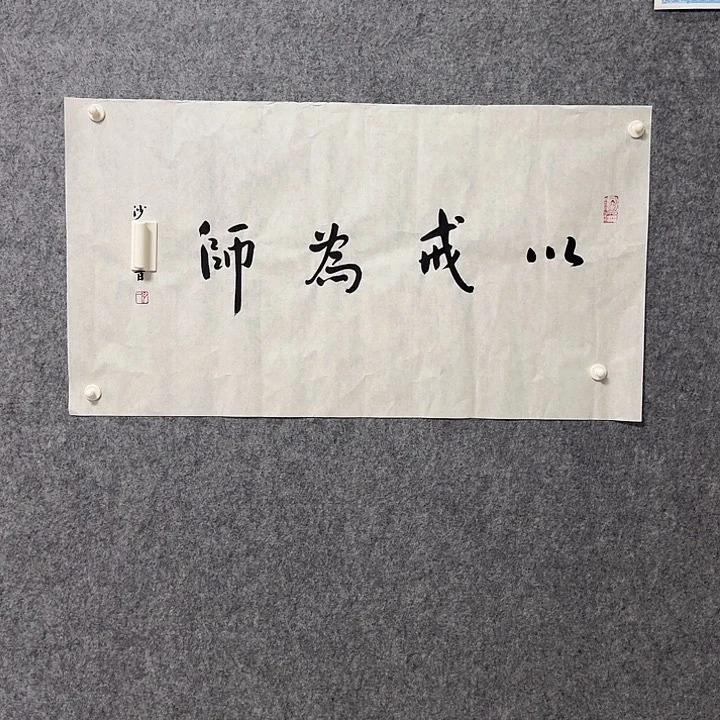 以戒為師
沙